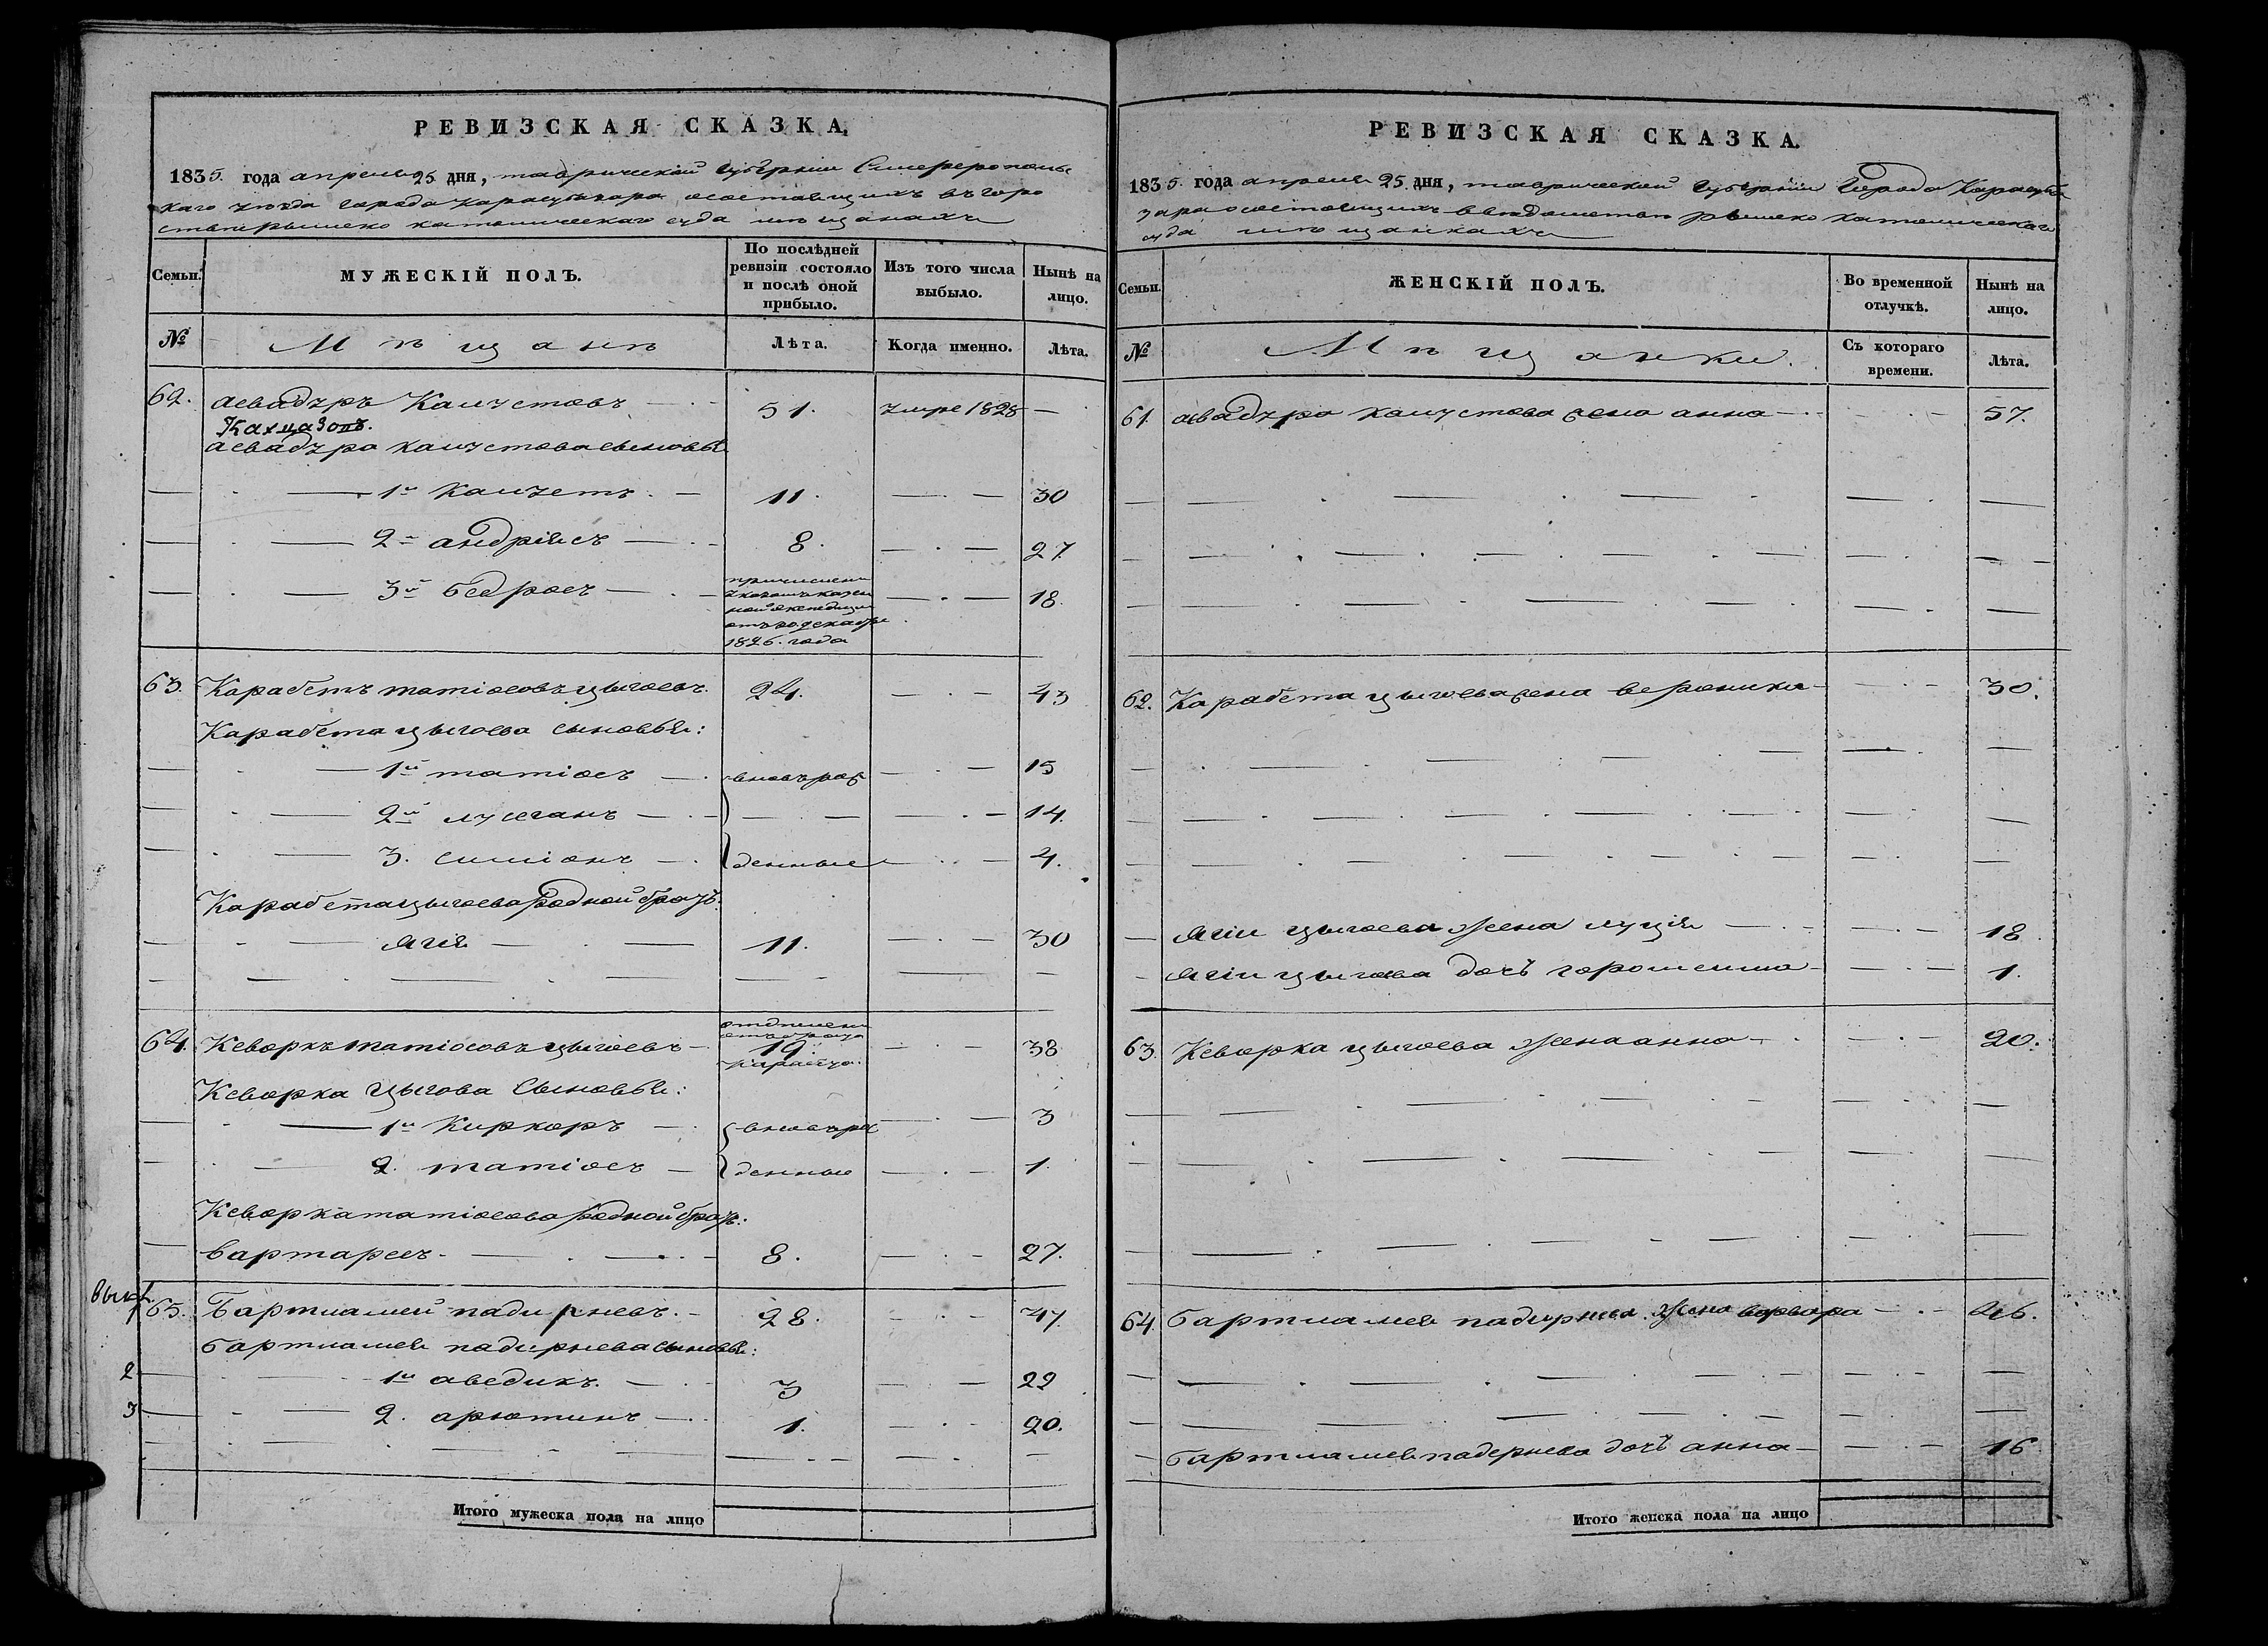 РЕВИЗСКАЯ СКАЗКА,
1835. года апреля 25 дня, таврической губернии Симферополь
скаго уезда города Карасубазара осостоящихъ въ горо
римско католическаго суда мѣщанахъ
Семьи.
МУЖЕСКІЙ ПОЛЪ.
По послѣдней ревизіи состояло и послѣ оной прибыло.
Изъ того числа выбыло.
Нынѣ на лицо.
№
Мѣщане
Лѣта.
Когда именно.
Лѣта.
62. асвадуръ Калустовъ — 51. умре 1828 —
асвадура калустова сыновья
1й Калустъ — 11. — 30
2й андріясъ — 8. — 27.
3й бедросъ — 18.
1826. года
63. Карабетъ матіосовъ цыгоевъ. 24. — 43
Карабета цыгоева сыновья:
1й матіосъ — вновь рож — 15
2й лусеганъ — 14.
3. симіонъ — денные — 4.
Карабета цыгоева родной братъ.
агія — 11. — 30
64. Кеворкъ матіосовъ цыгоевъ — 19. — 38
Кеворка цыгова Сыновья:
1й Киркоръ — вновь рож — 3
2. матіосъ — денные — 1.
Кеворка матіосова родной братъ:
вартаресъ — 8. — 27.
65. Бартламей падирневъ. — 28. — 47.
бартламея падирнева сыновья:
2 1й аведикъ. — 3 — 22
3 2. арютинъ — 1. — 20.
Итого мужеска пола на лицо
РЕВИЗСКАЯ СКАЗКА.
1835 года апреля 25 дня, таврической губерніи Города Карасуба
зара осостоящихъ введомстве римско католическаго
суда мѣщанкахъ
Семьи.
ЖЕНСКІЙ ПОЛЪ.
Во временной отлучкѣ.
Нынѣ на лицо.
№
Мѣщанки.
Съ котораго времени.
Лѣта.
61. асвадура калустова жена анна — 57.
62. Карабета цыгоева жена вероника — 30.
агіи цыгоева жена луція — 18
агіи цыгоева дочь — 1.
63. Кеворка цыгоева жена анна — 20.
64. бартламея падирнева жена варвара — 46.
бартламея падернева дочь анна — 16
Итого женска пола на лицо